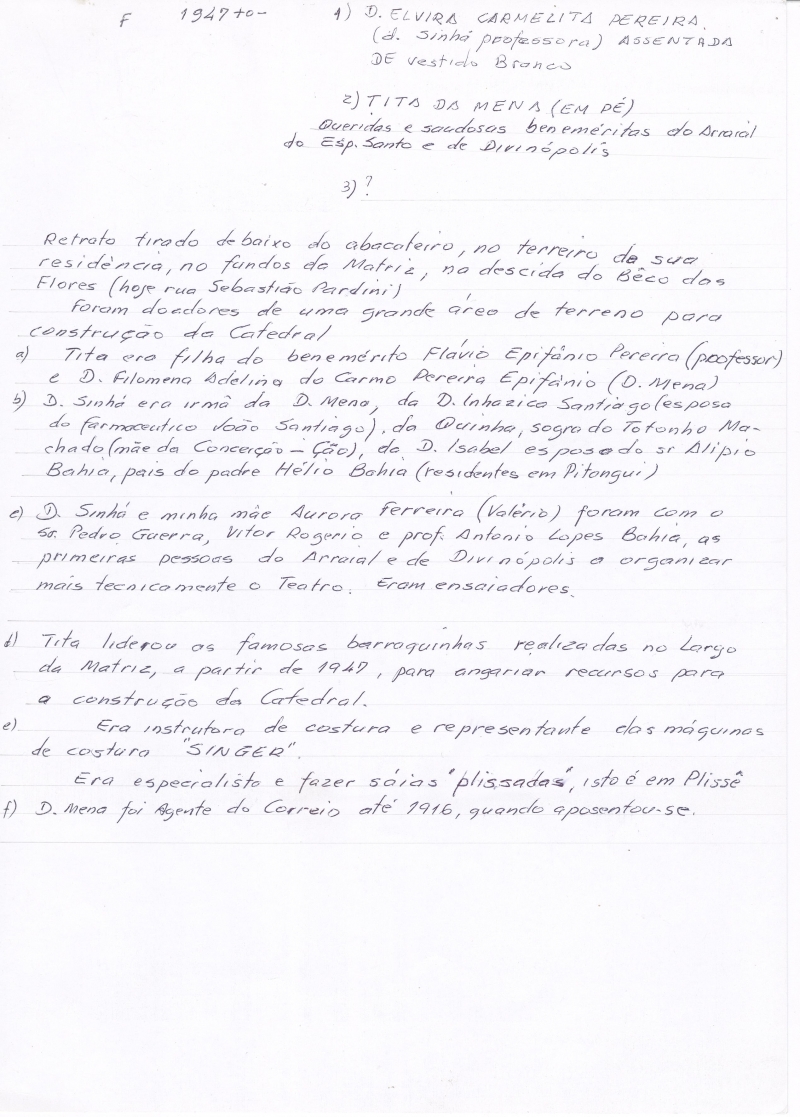 F 1947 +o-
1) D. ELVIRA CARMELITA PEREIRA.
(d. Sinhá professora) ASSENTADA
DE vestido Branco
2) TITA DA MENA (EM PÉ)
Queridas e saudosas beneméritas do Arraial
do Esp. Santo e de Divinópolis
3) ?
Retrato tirado debaixo do abacateiro, no terreiro de sua
residência, no fundos da Matriz, na descida do Bêco das
Flores (hoje rua Sebastião Pardini)
Foram doadores de uma grande área de terreno para
construção da Catedral
a) Tita era filha do benemérito Flávio Epifânio Pereira (professor)
e D. Filomena Adelina do Carmo Pereira Epifânio (D. Mena)
b) D. Sinhá era irmã da D. Mena, da D. Inhazica Santiago (esposa
do farmaceutico João Santiago), da Quinha, sogra do Totonho Ma-
chado (mãe da Conceição - Ção), da D. Isabel esposa do sr Alipio
Bahia, pais do padre Hélio Bahia (residentes em Pitangui)
c) D. Sinhá e minha mãe Aurora Ferreira (Valério) foram com o
Sr. Pedro Guerra, Vitor Rogerio e prof. Antonio Lopes Bahia, as
primeiras pessoas do Arraial e de Divinópolis a organizar
mais tecnicamente o Teatro. Eram ensaiadores.
d) Tita liderou as famosas barraquinhas realizadas no Largo
da Matriz, a partir de 1947, para angariar recursos para
a construção da Catedral.
e) Era instrutora de costura e representante das máquinas
de costura "SINGER".
Era especialista e fazer sáias "plissadas", isto é em Plissê
f) D. Mena foi Agente do Correio até 1916, quando aposentou-se.